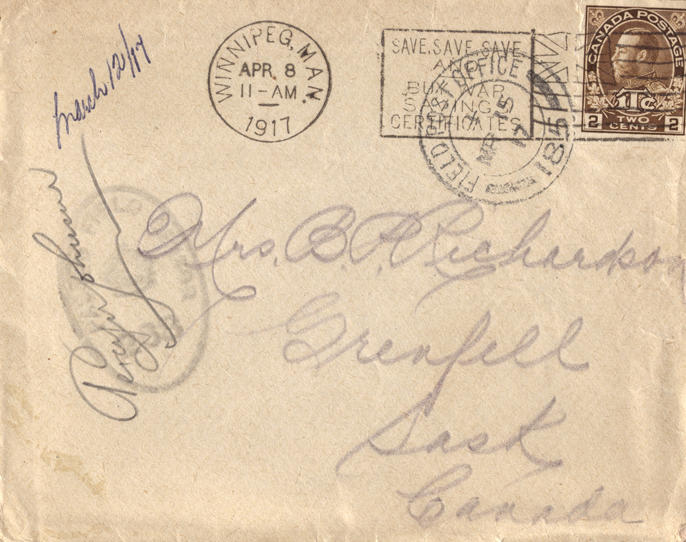 March 12/17
WINNIPEG, MAN.
APR. 8
11-AM
1917
SAVE, SAVE, SAVE
AND
BUY WAR
SAVINGS
CERTIFICATES
FIELD POST OFFICE
15
17
185
CANADA POSTAGE
1Tc
2 TWO CENTS 2
FIELD
Mrs. B. P. Richardson
Grenfell
Sask
Canada